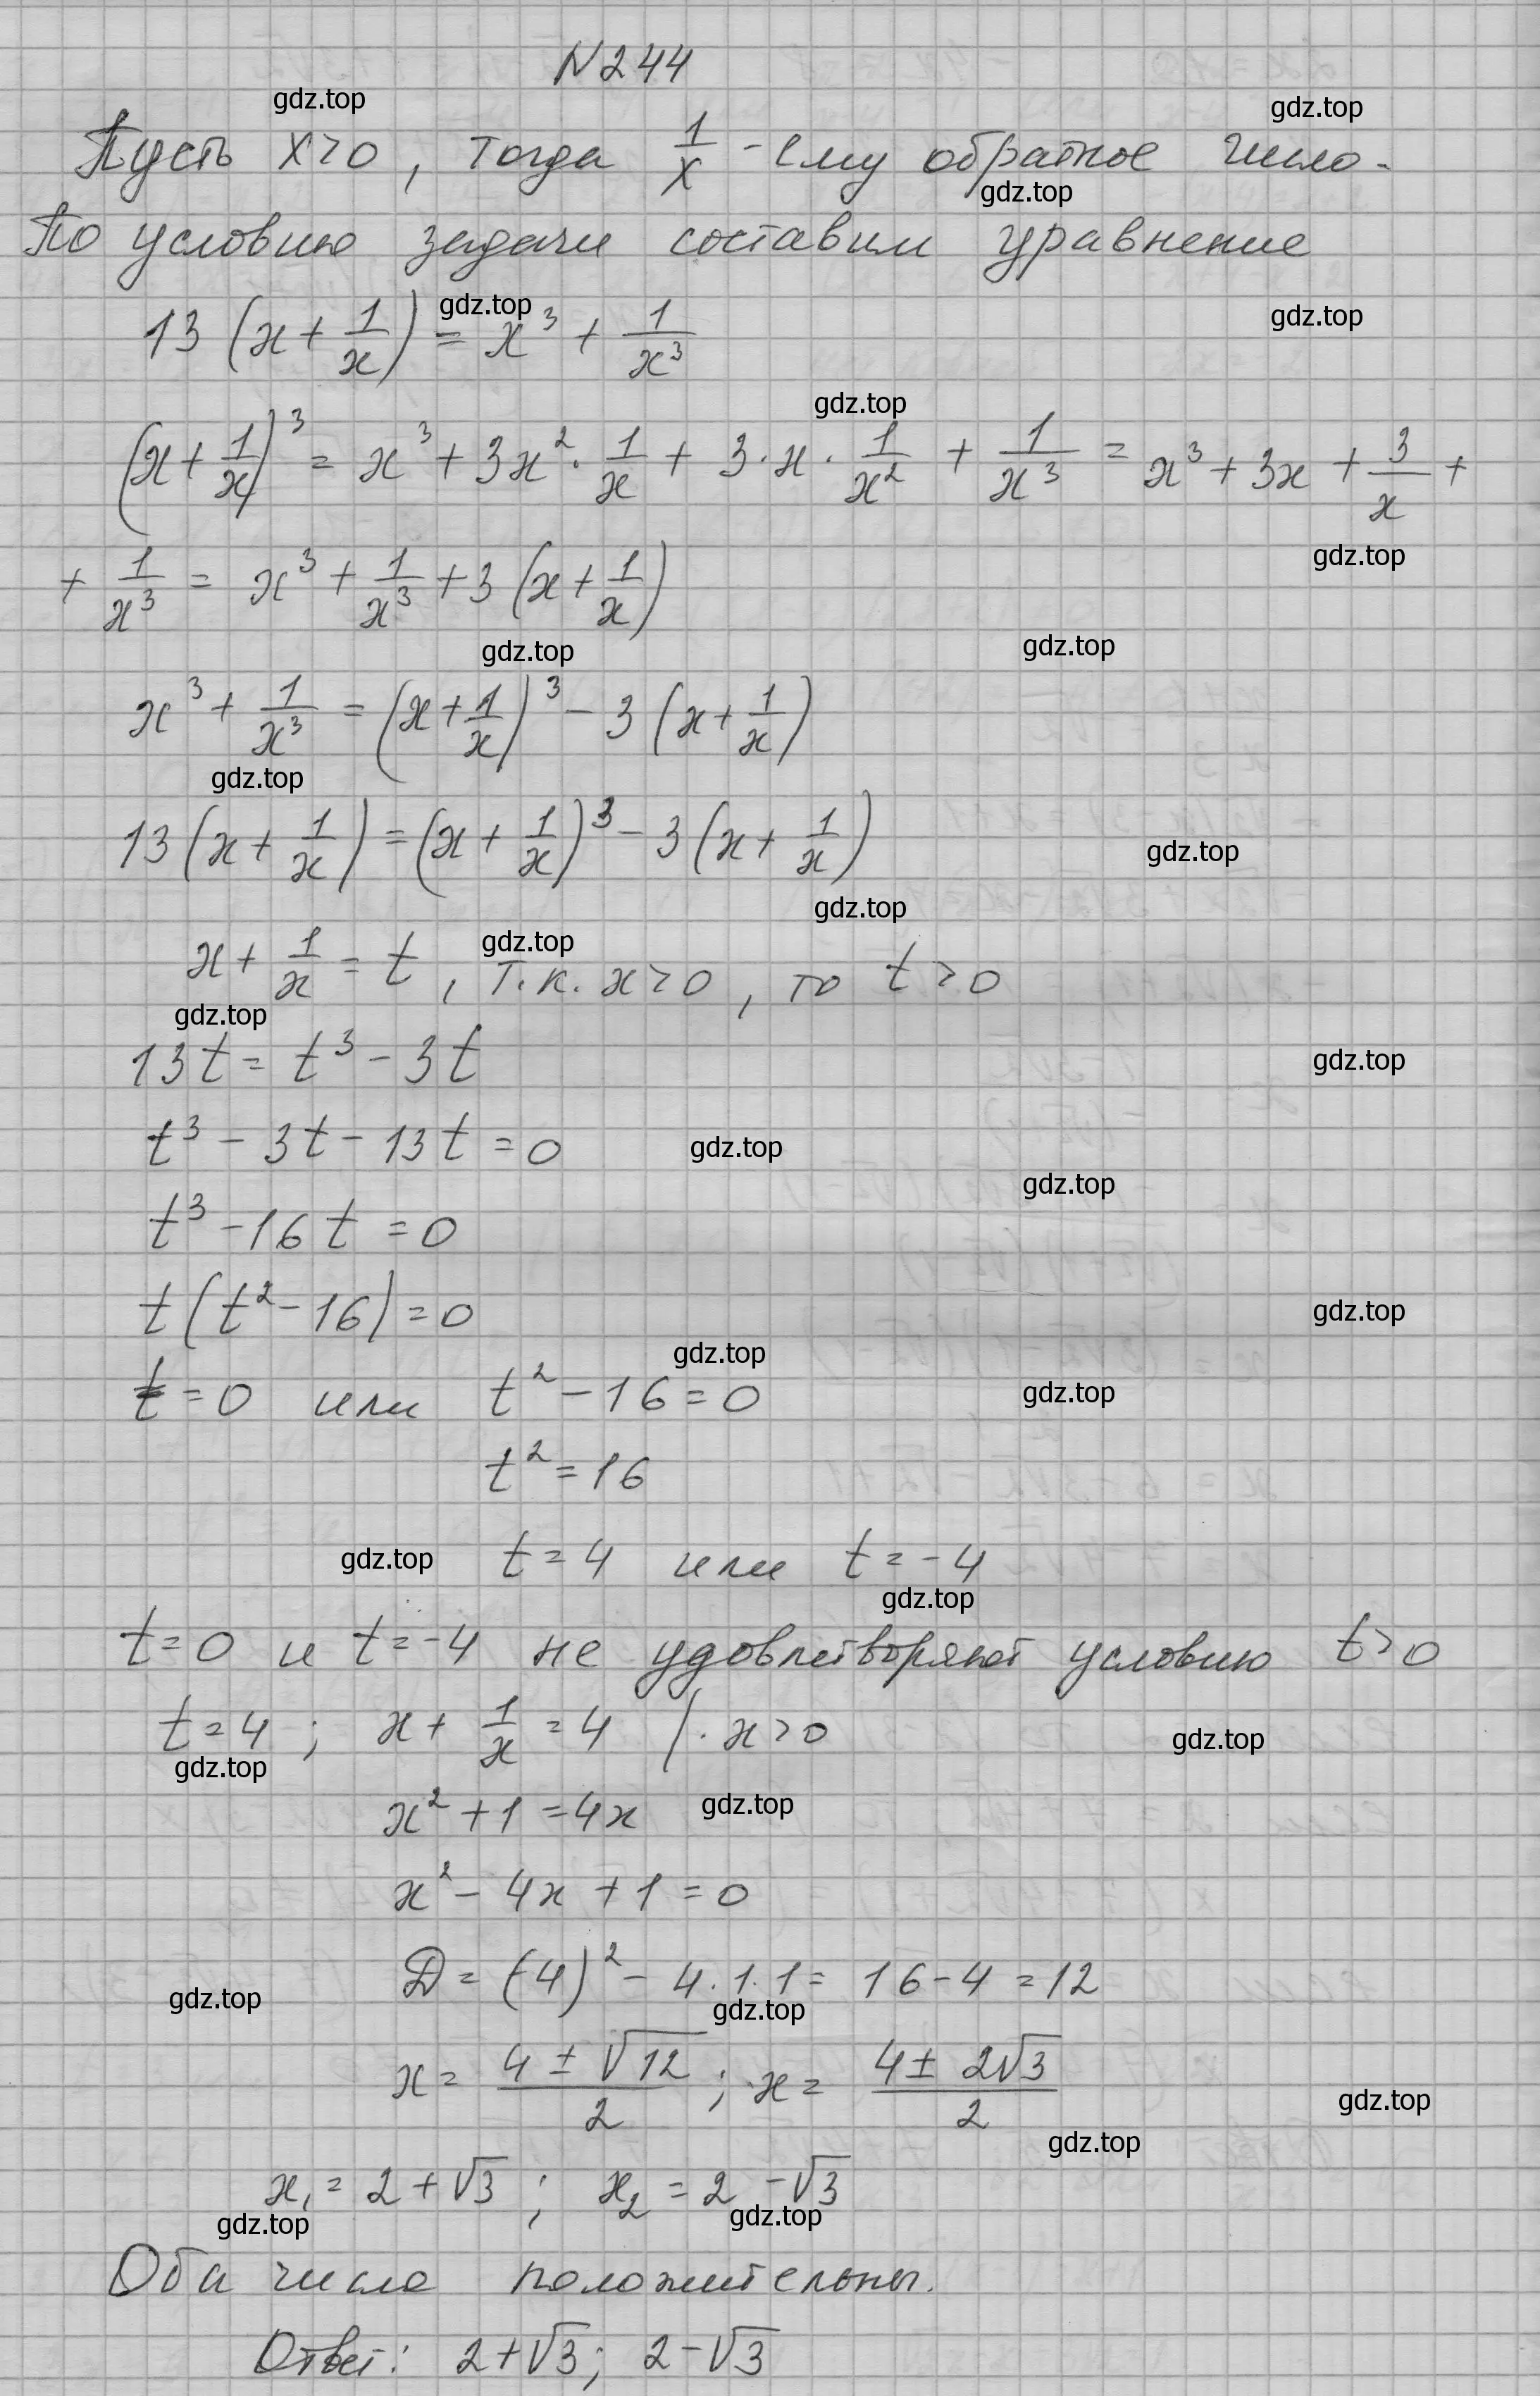 N244
gdz.top
gdz.top
Пусть x>0, тогда 1/x - ему обратное число.
gdz.top
По условию задачи составим уравнение
gdz.top
gdz.top
13(x + 1/x) = x³ + 1/x³
gdz.top
(x + 1/x)³ = x³ + 3x² · 1/x + 3 · x · 1/x² + 1/x³ = x³ + 3x + 3/x +
gdz.top
+ 1/x³ = x³ + 1/x³ + 3(x + 1/x)
gdz.top
gdz.top
x³ + 1/x³ = (x + 1/x)³ - 3(x + 1/x)
gdz.top
13(x + 1/x) = (x + 1/x)³ - 3(x + 1/x)
gdz.top
gdz.top
gdz.top
x + 1/x = t, т.к. x>0, то t>0
gdz.top
13t = t³ - 3t
gdz.top
t³ - 3t - 13t = 0
gdz.top
gdz.top
t³ - 16t = 0
t(t² - 16) = 0
gdz.top
gdz.top
t = 0 или t² - 16 = 0
gdz.top
t² = 16
t = 4 или t = -4
gdz.top
gdz.top
t = 0 и t = -4 не удовлетворяют условию t>0
t = 4; x + 1/x = 4 | · x>0
gdz.top
gdz.top
x² + 1 = 4x
gdz.top
x² - 4x + 1 = 0
D = (-4)² - 4·1·1 = 16 - 4 = 12
gdz.top
gdz.top
x = (4 ± √12)/2; x = (4 ± 2√3)/2
gdz.top
gdz.top
x₁ = 2 + √3; x₂ = 2 - √3
gdz.top
gdz.top
Оба числа положительны.
Ответ: 2+√3; 2-√3